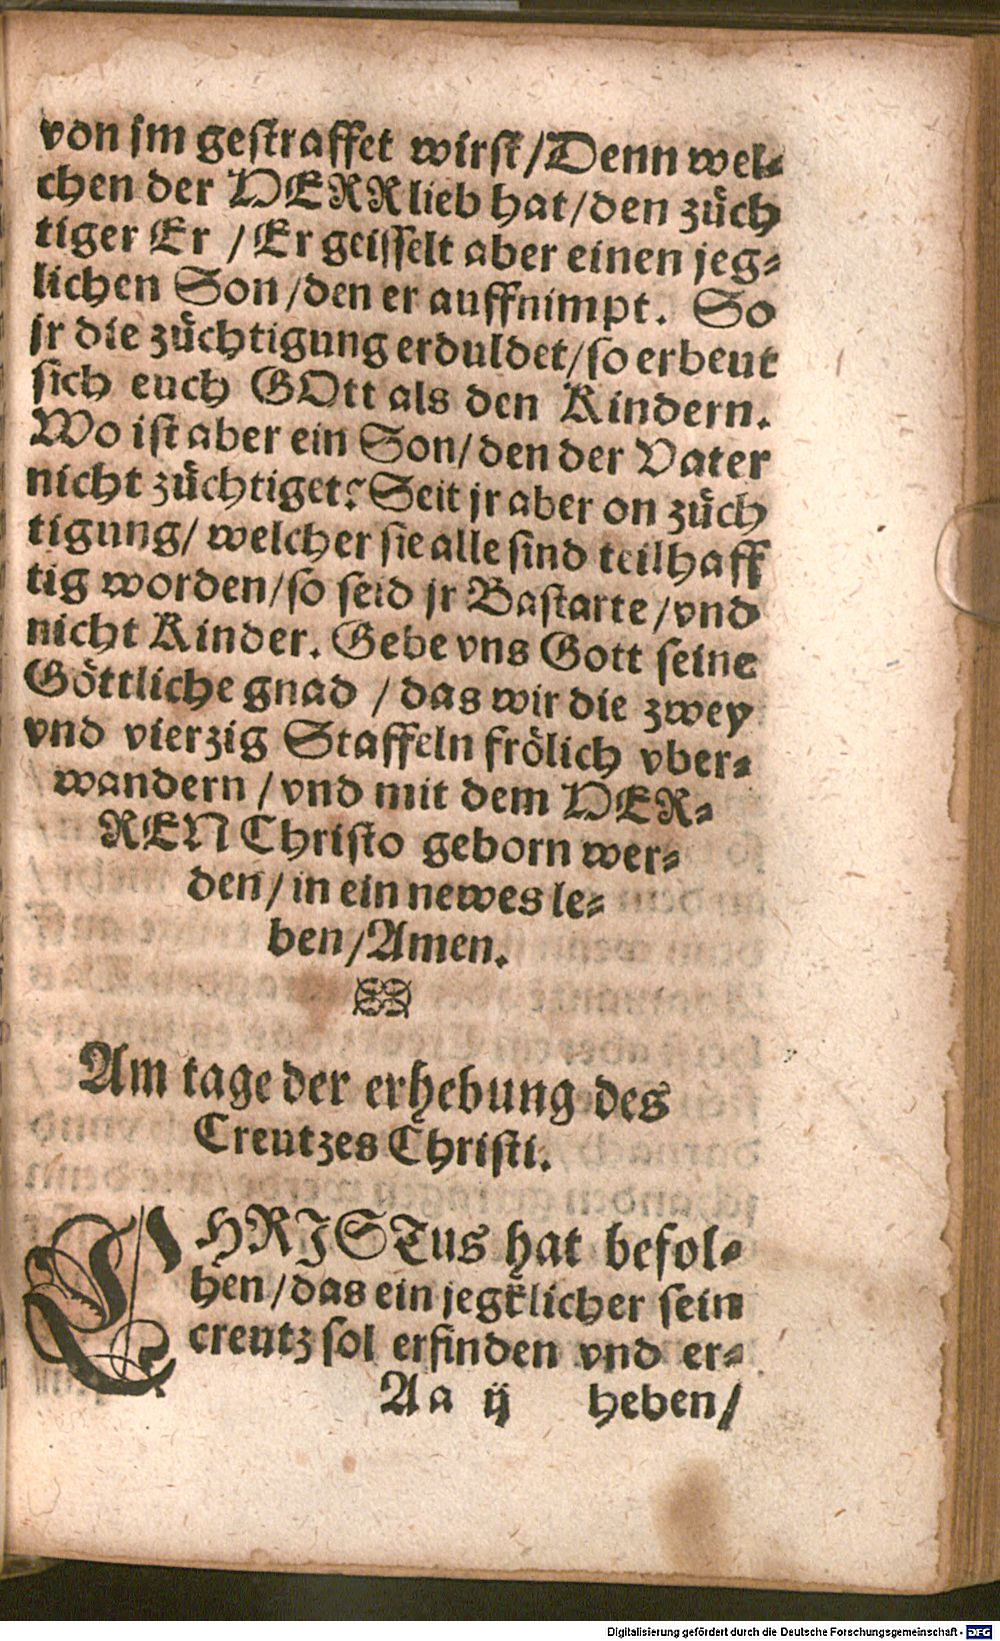 von jm gestraffet wirst/Denn wel-
chen der HERR lieb hat/den züch
tiger Er /Er geisselt aber einen jeg-
lichen Son/den er auffnimpt. So
jr die züchtigung erduldet/so erbeut
sich euch GOtt als den Kindern.
Wo ist aber ein Son/den der Vater
nicht züchtiget? Seit jr aber on züch
tigung/welcher sie alle sind teilhaff
tig worden/so seid jr Bastarte/vnd
nicht Kinder. Gebe vns Gott seine
Göttliche gnad /das wir die zwey
vnd vierzig Staffeln frölich vber-
wandern /vnd mit dem HER-
REN Christo geborn wer-
den/in ein newes le-
ben/Amen.
Am tage der erhebung des
Creutzes Christi.
CHRISTus hat befol-
hen/das ein jegklicher sein
creutz sol erfinden vnd er-
Aa ij heben/
Digitalisierung gefördert durch die Deutsche Forschungsgemeinschaft - DFG